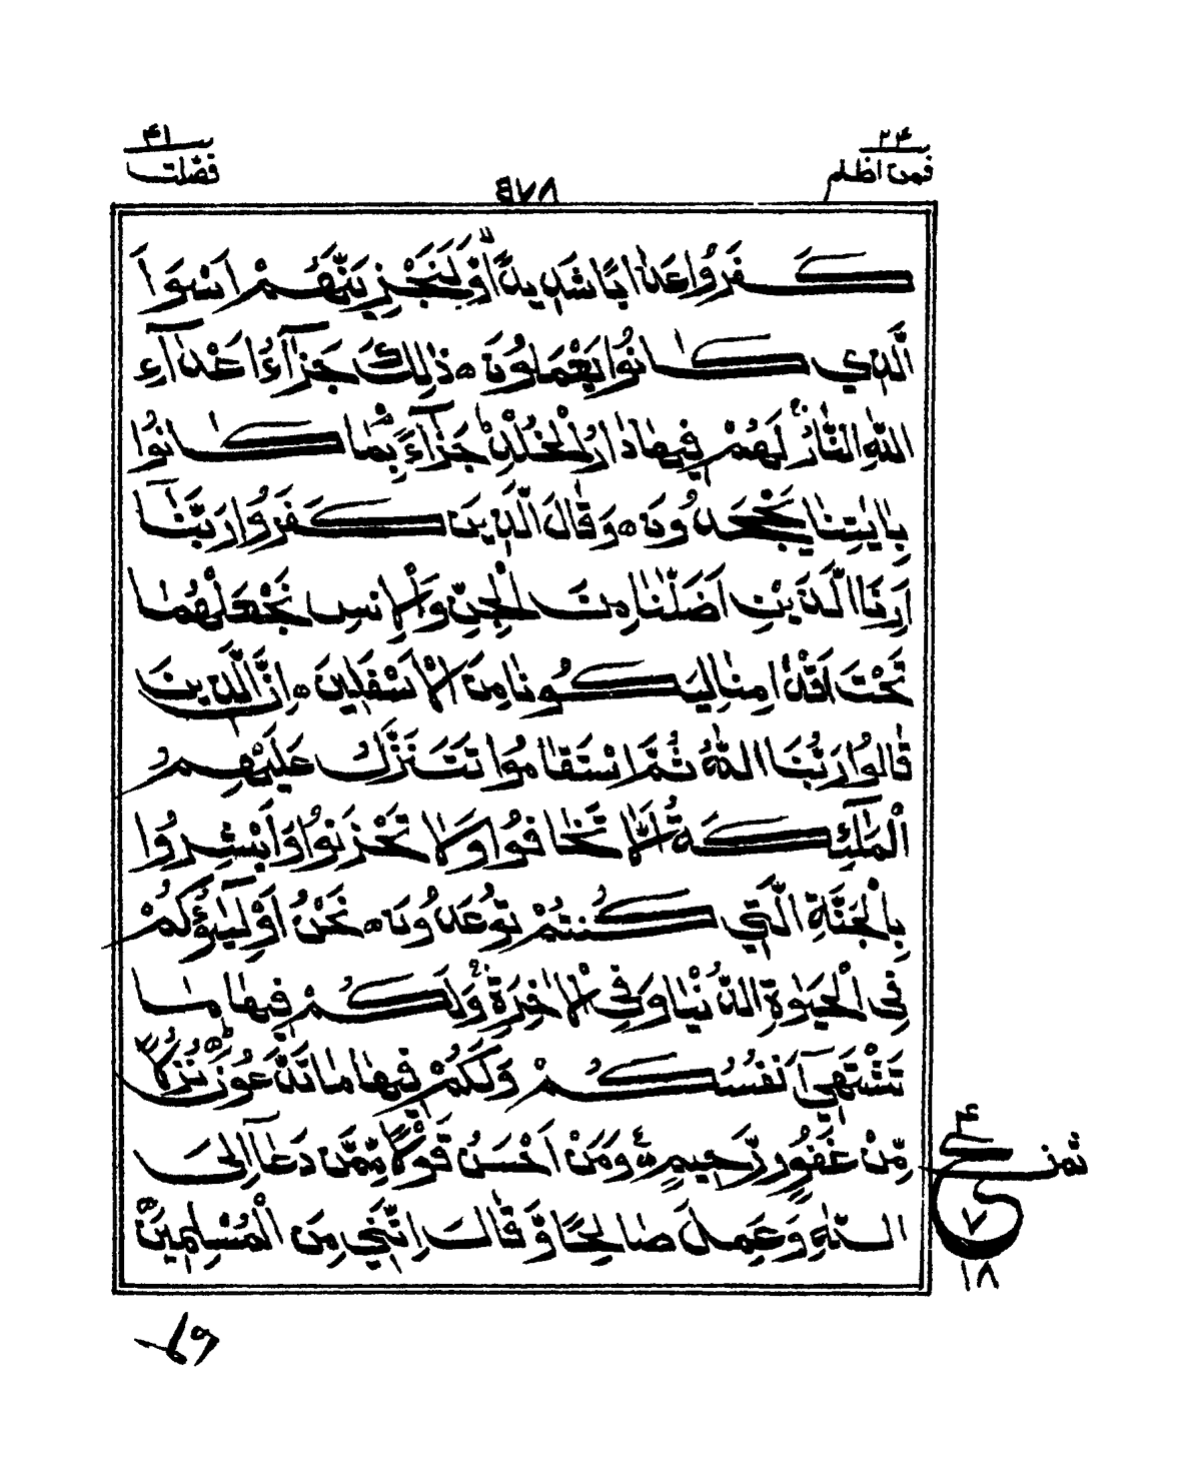 ۲۴
فمن اظلم
۴۱
فصّلت
٤٧٨
كَفَرُوْا عَذَابًا شَدِيْدًا وَّلَنَجْزِيَنَّهُمْ اَسْوَاَ
الَّذِي كَانُوْا يَعْمَلُوْنَ ۝ ذٰلِكَ جَزَآءُ اَعْدَآءِ
اللّٰهِ النَّارُ ۚ لَهُمْ فِيْهَا دَارُ الْخُلْدِ ؕ جَزَآءً بِۢمَا كَانُوْا
بِاٰيٰتِنَا يَجْحَدُوْنَ ۝ وَقَالَ الَّذِيْنَ كَفَرُوْا رَبَّنَآ
اَرِنَا الَّذَيْنِ اَضَلّٰنَا مِنَ الْجِنِّ وَالْاِنْسِ نَجْعَلْهُمَا
تَحْتَ اَقْدَامِنَا لِيَكُوْنَا مِنَ الْاَسْفَلِيْنَ ۝ اِنَّ الَّذِيْنَ
قَالُوْا رَبُّنَا اللّٰهُ ثُمَّ اسْتَقَامُوْا تَتَنَزَّلُ عَلَيْهِمُ
الْمَلٰٓئِكَةُ اَلَّا تَخَافُوْا وَلَا تَحْزَنُوْا وَاَبْشِرُوْا
بِالْجَنَّةِ الَّتِي كُنْتُمْ تُوْعَدُوْنَ ۝ نَحْنُ اَوْلِيٰٓؤُكُمْ
فِي الْحَيٰوةِ الدُّنْيَا وَفِي الْاٰخِرَةِ ۚ وَلَكُمْ فِيْهَا مَا
تَشْتَهِيْٓ اَنْفُسُكُمْ وَلَكُمْ فِيْهَا مَا تَدَّعُوْنَ ۝ نُزُلًا
مِّنْ غَفُوْرٍ رَّحِيْمٍ ۝ وَمَنْ اَحْسَنُ قَوْلًا مِّمَّنْ دَعَآ اِلَى
اللّٰهِ وَعَمِلَ صَالِحًا وَّقَالَ اِنَّنِي مِنَ الْمُسْلِمِيْنَ ۝
ثمن
۴
ع
۷
۱۸